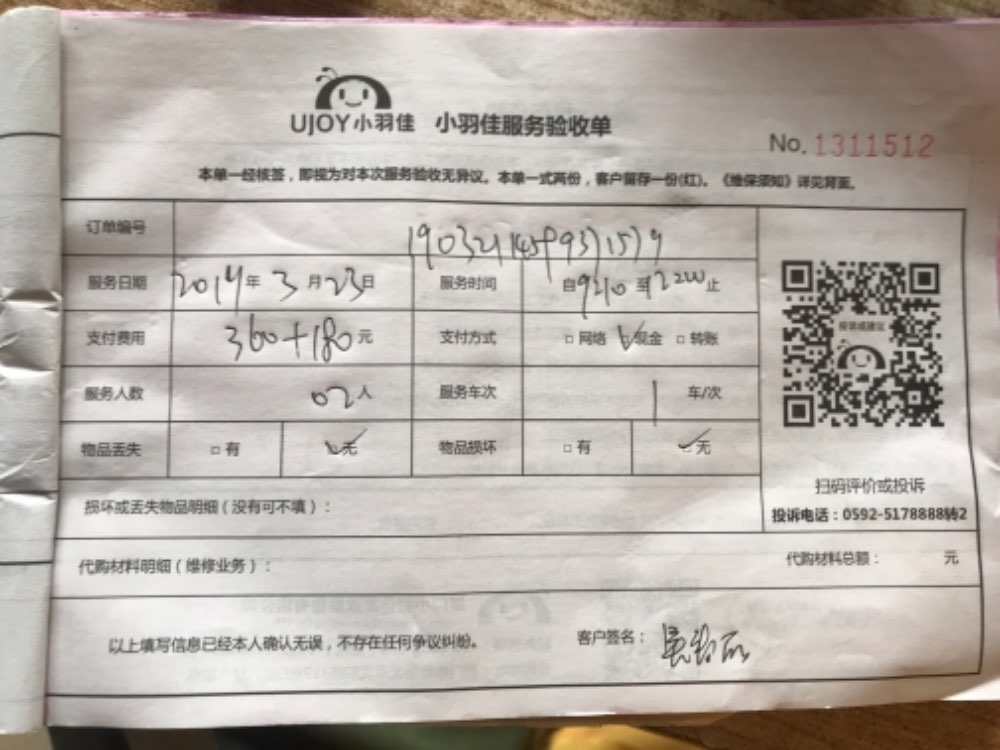 UJOY小羽佳 小羽佳服务验收单
No. 1311512
本单一经核签，即视为对本次服务验收无异议。本单一式两份，客户留存一份(红)。《维保须知》详见背面。
订单编号
服务日期 2019年 3月23日 服务时间 自9:10至12:00止
支付费用 360+180元 支付方式 □网络 ☑现金 □转账
投诉或建议
服务人数 02人 服务车次 1 车/次
物品丢失 □有 ☑无 物品损坏 □有 ☑无
扫码评价或投诉
投诉电话：0592-5178888转2
损坏或丢失物品明细（没有可不填）：
代购材料明细（维修业务）： 代购材料总额： 元
以上填写信息已经本人确认无误，不存在任何争议纠纷。 客户签名：